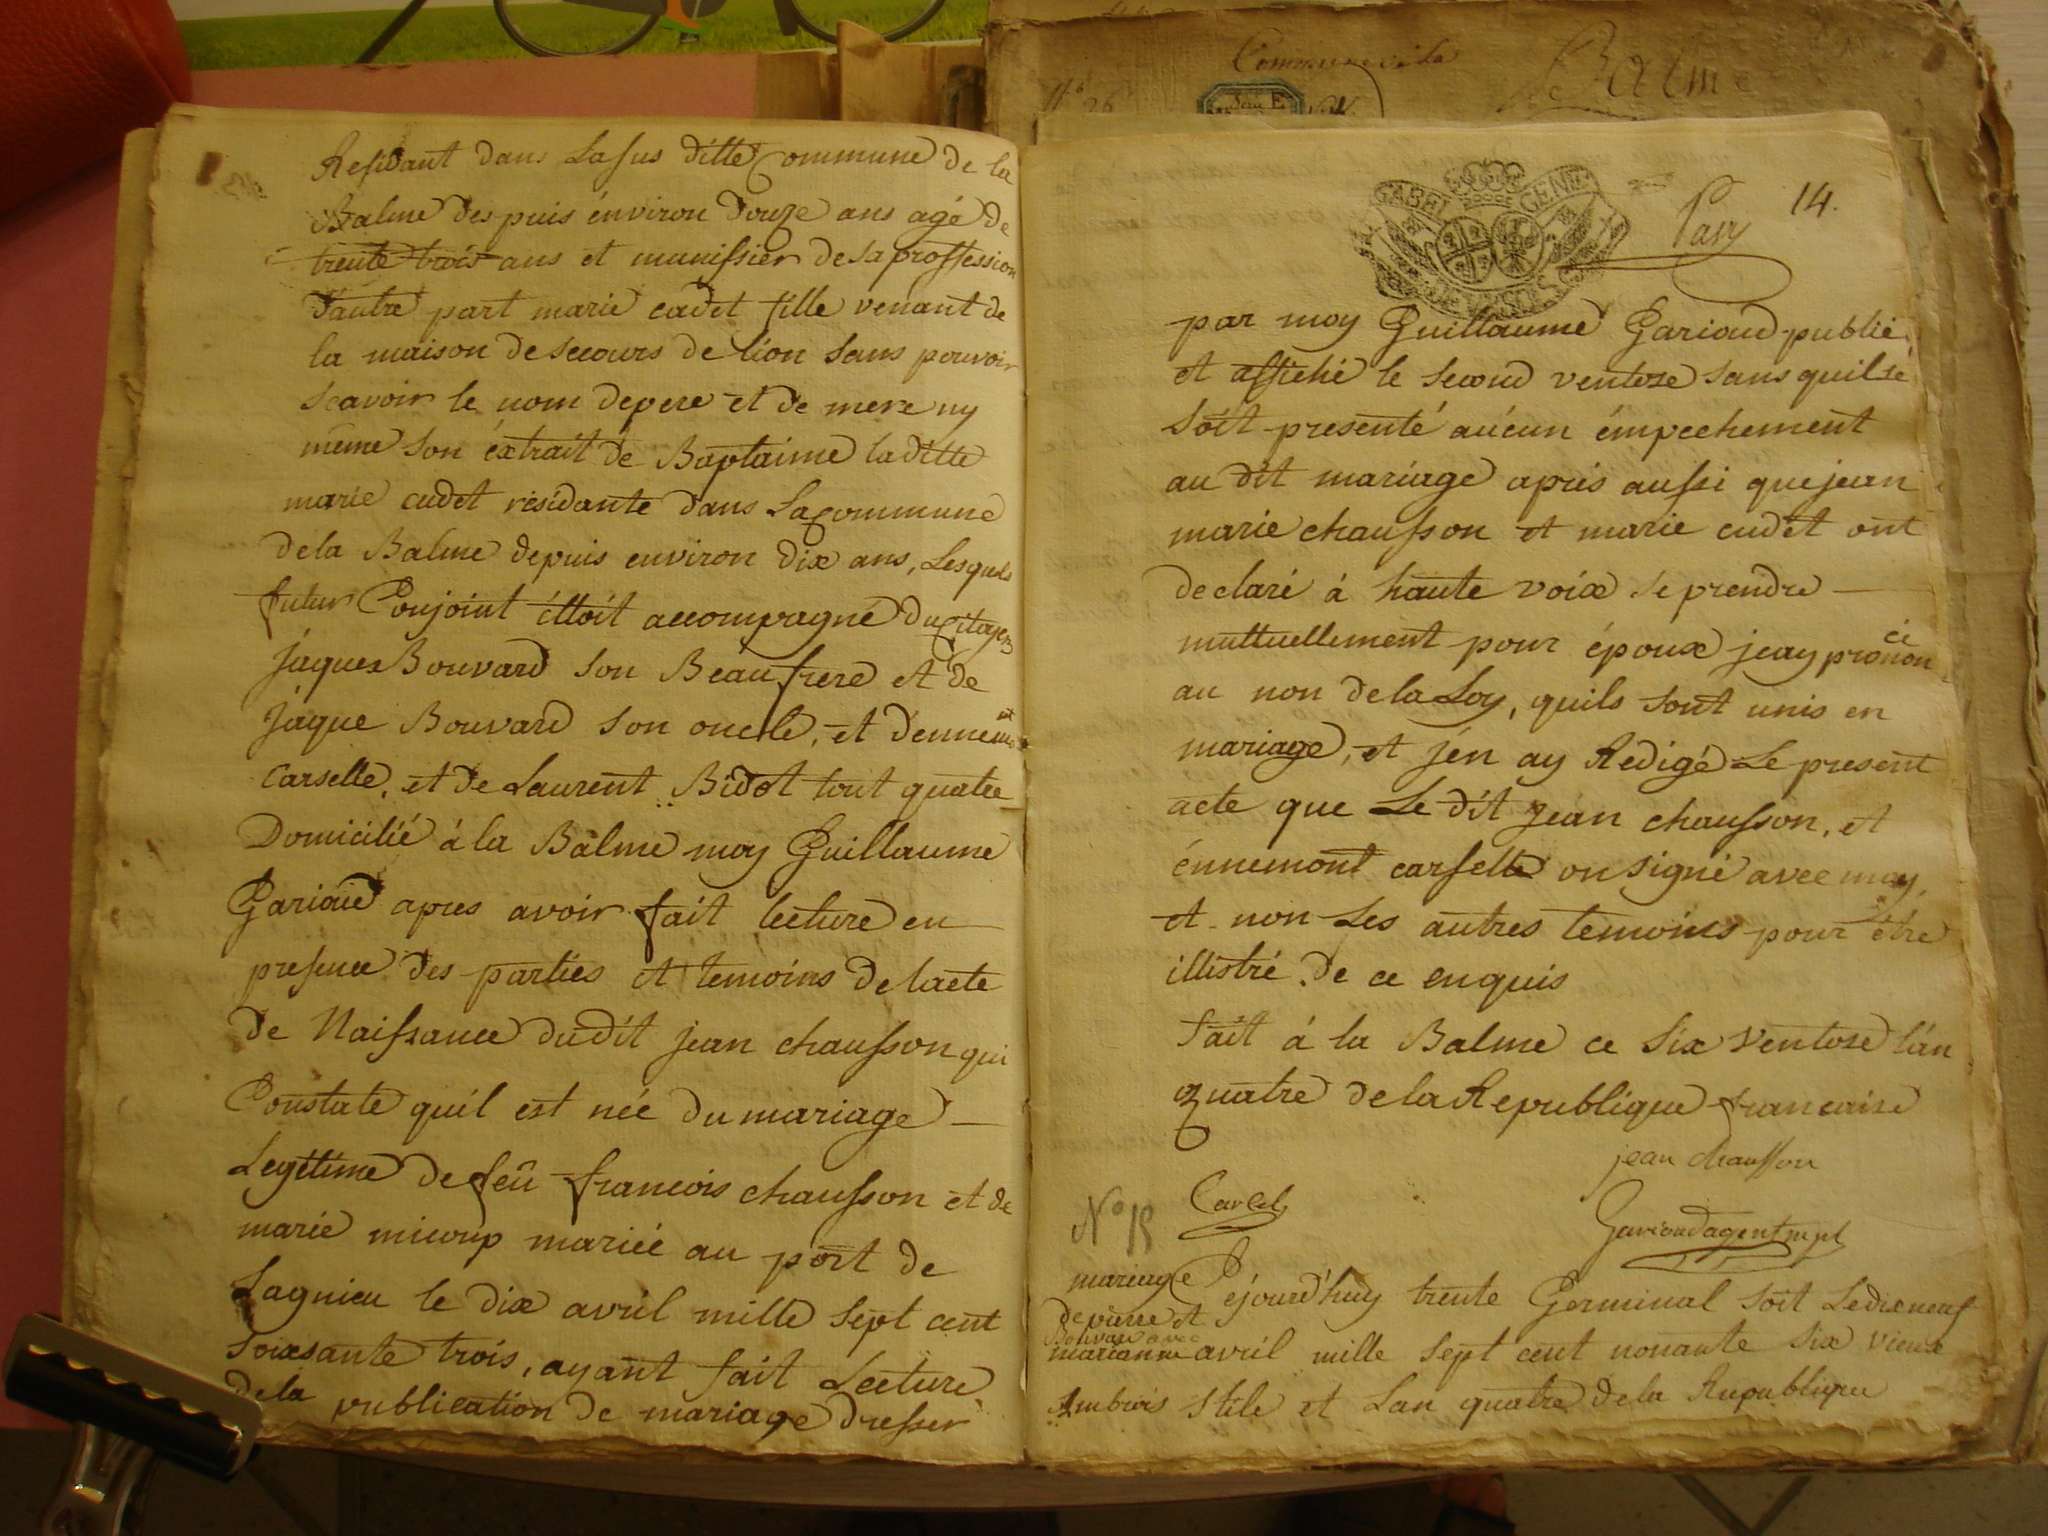 Commune de la
Balme
N° 26
Série E
Residant dans La sus ditte Commune de la
Balme des puis énviron douze ans agé de
trente trois ans et munissier de sa proffession
d'autre part marie cadet fille venant de
la maison de secours de lion sans pouvoir
scavoir le nom de pere et de mere ny
même son éxtrait de Baptaime laditte
marie cudet residante dans La commune
de la Balme depuis environ dix ans, Lesquels
futur Conjoint éttoit accompagné du Citoyen
jaques Bouvard son Beau frere et de
jaque Bouvard son oncle, et d'ennemont
Carselle, et de Laurent Bidot tout quatre
Domicilié à la Balme moy Guillaume
Garioud apres avoir fait lecture en
presence des parties et temoins de lacte
de Naissance dudit jean chausson qui
Constate quil est née du mariage
Legitime de feû francois chausson et de
marie micoup mariéé au port de
Lagnieu le dix avril mille sept cent
soixsante trois, ayant fait Lecture
de la publication de mariage dresser
GABEL GENE
14.
par moy Guillaume Garioud publié
et affiché le second ventose sans quil se
soit presenté aúcun émpechement
au dit mariage aprés aussi que jean
marie chausson et marie cudet ont
declaré à haute voix se prendre
muttuellement pour époux jeay pronon
ce
au non de la Loy, quils sont unis en
mariage, et jén ay Redigé Le present
acte que Le dit jean chausson, et
énnemont carselle on signé avec moy,
et non Les autres temoins pour être
illistré de ce enquis
fait á la Balme ce six Ventose l'an
quatre de la Republique francaise
jean chausson
Carsel
Garioud agent mpl
N° 15
mariage
de pierre et
Bouvar avec
marianne
Ambrois
Cejourd'huy trente Germinal soit Le dix neuf
avril mille sept cent nonante six vieux
stile et Lan quatre de la Republique